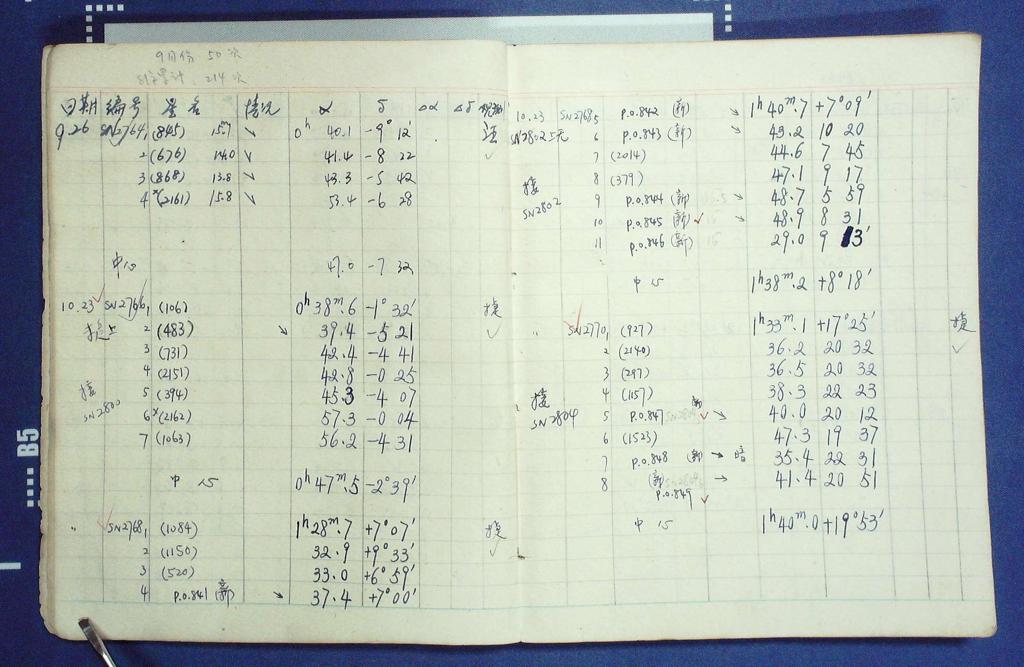 9月份 50次
累计 214次
日期 编号 星名 情况 α δ Δα Δδ
9.26 SN2764,1 (845) 15.7 ↘ 0h 40.1 -9° 12'
2 (676) 14.0 ↘ 41.4 -8 22
3 (868) 13.8 ↘ 43.3 -5 42
4 *(2161) 15.8 ↘ 53.4 -6 28
中心 47.0 -7 32
10.23 SN2766,1 (106) 0h38m.6 -1° 32'
2 (483) ↘ 39.4 -5 21
3 (731) 42.4 -4 41
4 (2151) 42.8 -0 25
接 5 (394) 45.3 -4 07
SN2800 6 *(2162) 57.3 -0 04
7 (1063) 56.2 -4 31
中心 0h47m.5 -2°39'
〃 SN2768,1 (1084) 1h28m.7 +7°07'
2 (1150) 32.9 +9° 33'
3 (520) 33.0 +6° 59'
4 P.O.841 (新) ↘ 37.4 +7° 00'
10.23 SN2768,5 P.O.842 (新) 1h40m.7 +7°09'
SN2802 6 P.O.843 (新) ↘ 43.2 10 20
7 (2014) 44.6 7 45
8 (379) 47.1 9 17
接 9 P.O.844 (新) → 48.7 5 59
SN2802 10 P.O.845 (新) ✓ → 48.9 8 31
11 P.O.846 (新) 29.0 9 13'
中心 1h38m.2 +8°18'
〃 SN2770,1 (927) 1h33m.1 +17°25'
2 (2140) 36.2 20 32
3 (297) 36.5 20 32
接 4 (1157) 38.3 22 23
SN2804 5 P.O.847 新 ✓ ↘ 40.0 20 12
6 (1523) 47.3 19 37
7 P.O.848 (新) → 暗 35.4 22 31
8 (新) → 41.4 20 51
P.O.849 ✓
中心 1h40m.0 +19°53'
B5